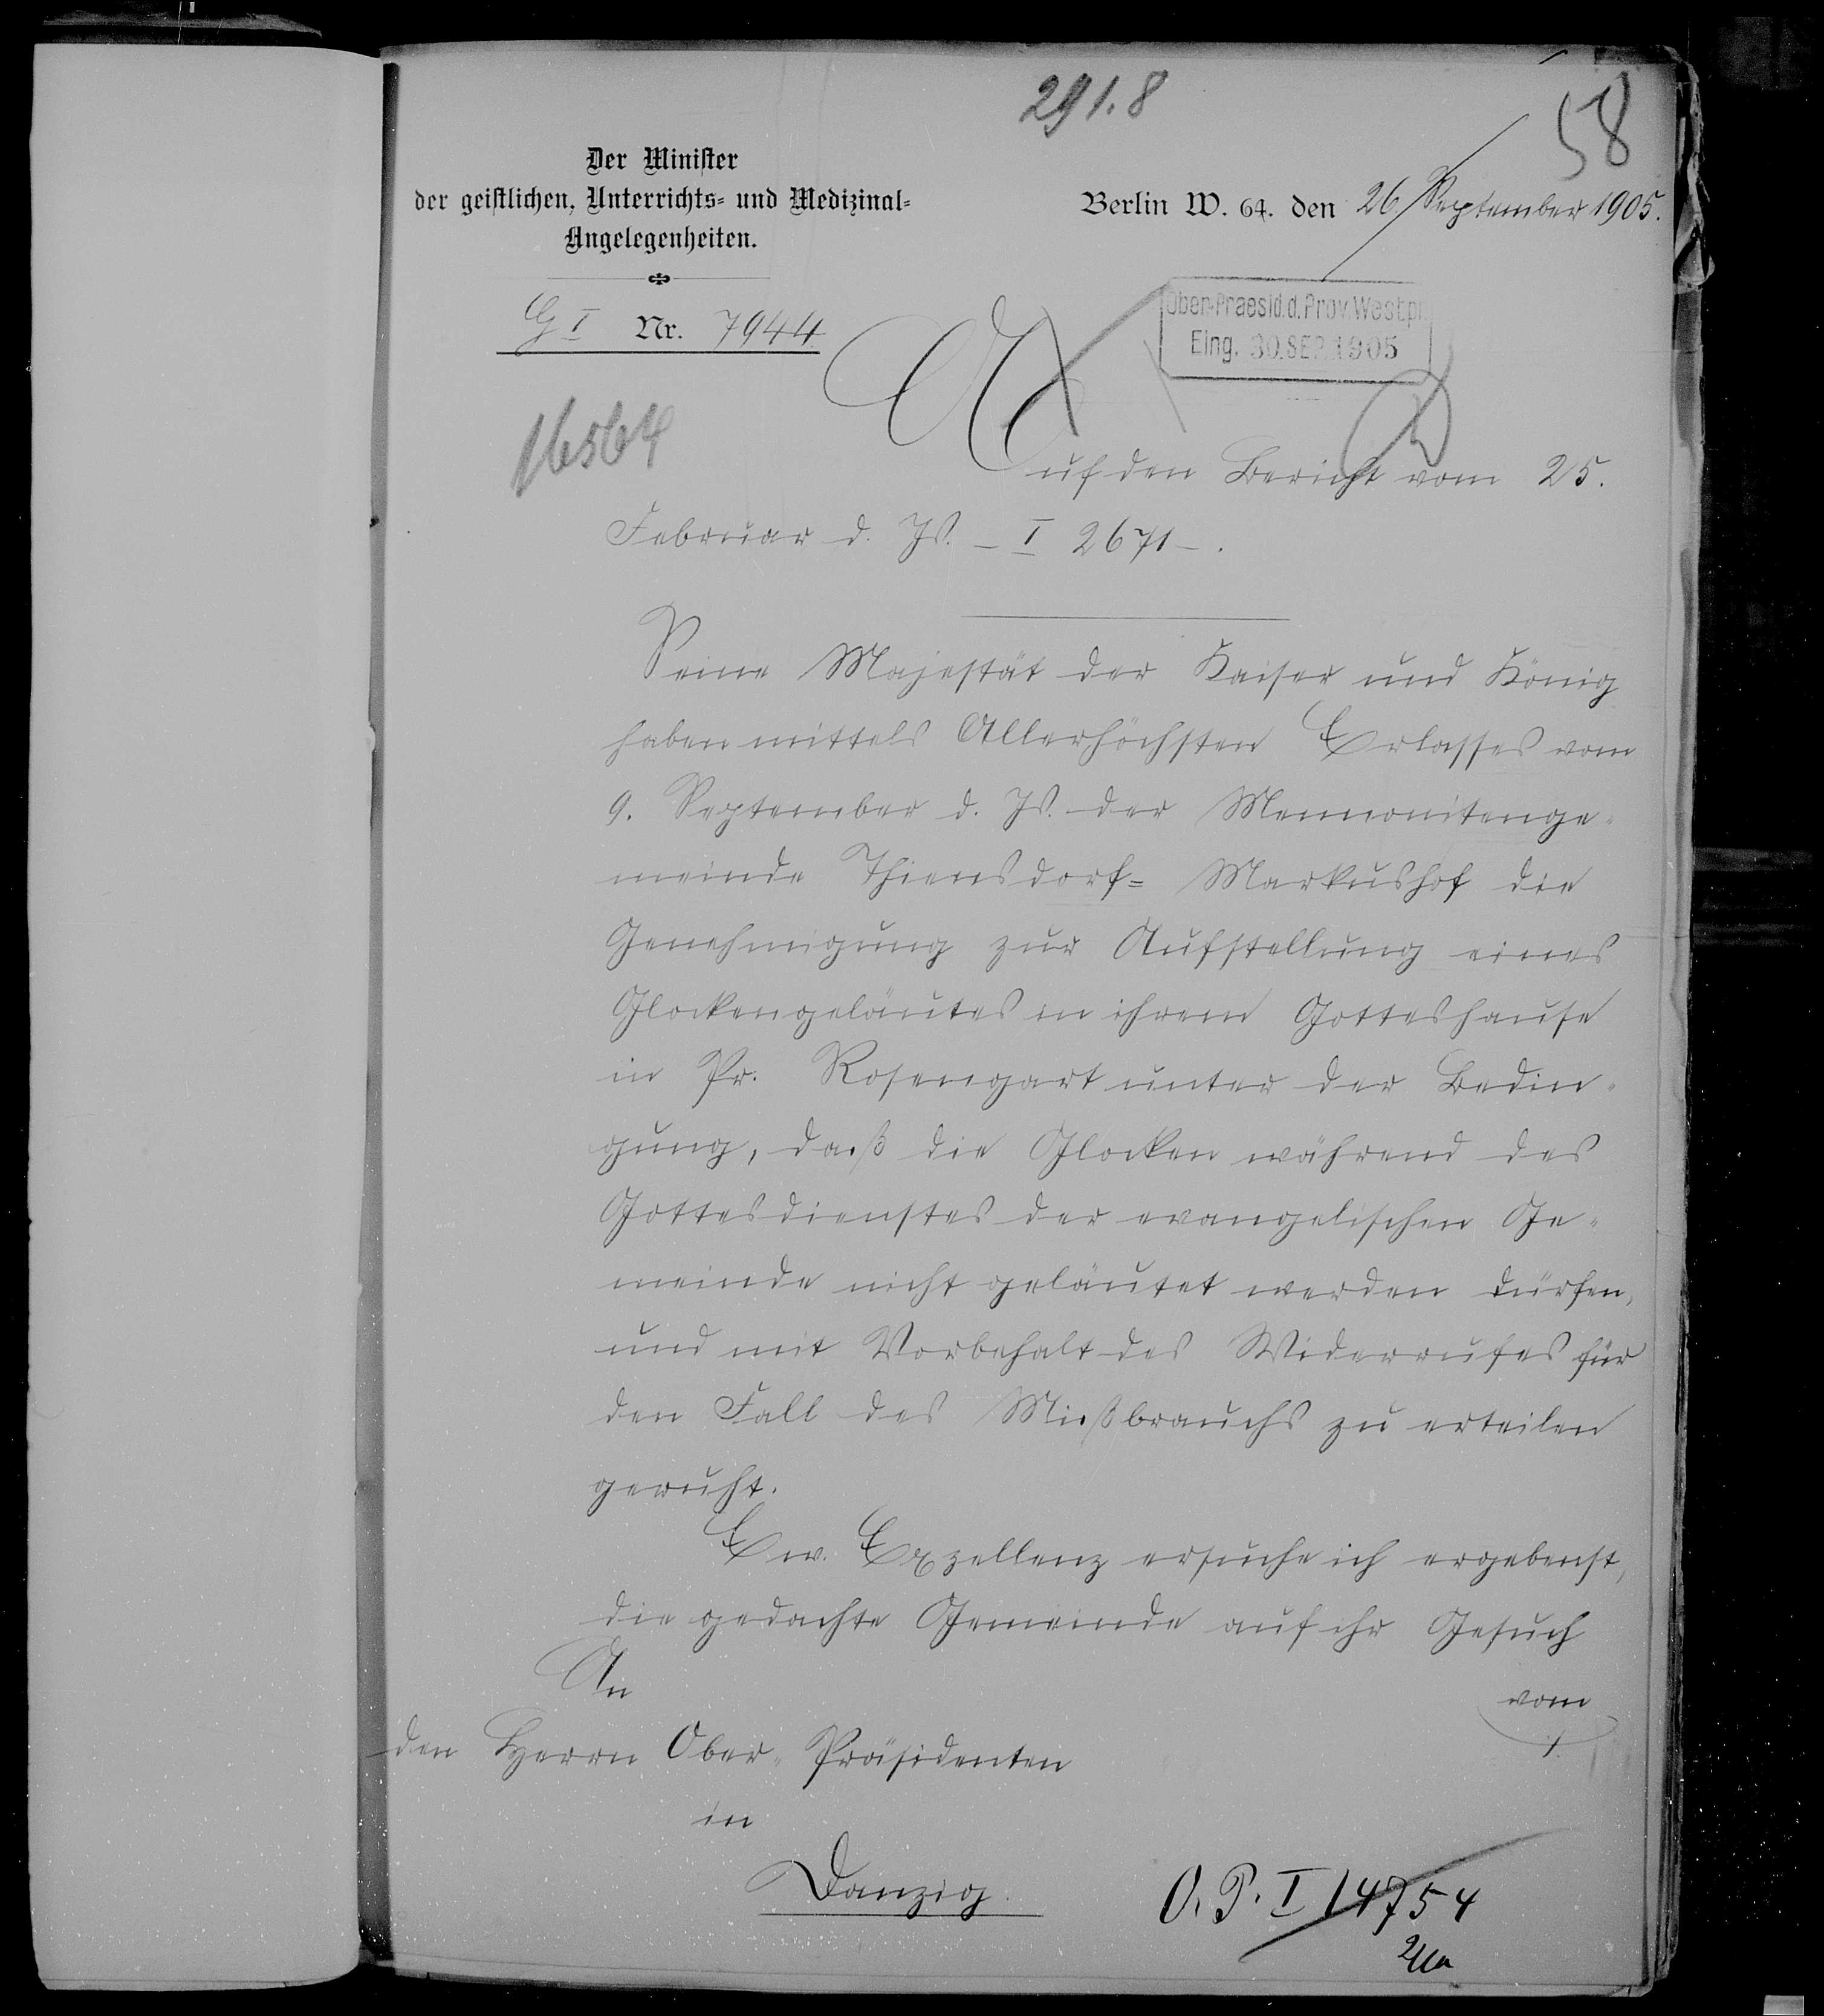 291.8
58
Der Minister
der geistlichen, Unterrichts- und Medizinal-
Angelegenheiten.
Berlin W. 64. den 26. September 1905.
G I Nr. 7944.
Ober-Praesid.d.Prov.Westpr.
Eing. 30.SEP.1905
16564
Auf den Bericht vom 25.
Februar d. Js. – I 2671 – .
Seine Majestät der Kaiser und König
haben mittels Allerhöchsten Erlasses vom
9. September d. Js. der Mennonitenge-
meinde Thiensdorf- Markushof die
Genehmigung zur Aufstellung eines
Glockengeläutes in ihrem Gotteshause
in Pr. Rosengart unter der Bedin-
gung, daß die Glocken während des
Gottesdienstes der evangelischen Ge-
meinde nicht geläutet werden dürfen,
und mit Vorbehalt des Widerrufes für
den Fall des Mißbrauchs zu erteilen
geruht.
Ew. Exzellenz ersuche ich ergebenst,
die gedachte Gemeinde auf ihr Gesuch
vom
An
den Herrn Ober-Präsidenten
in
Danzig.
O. P. I 14754